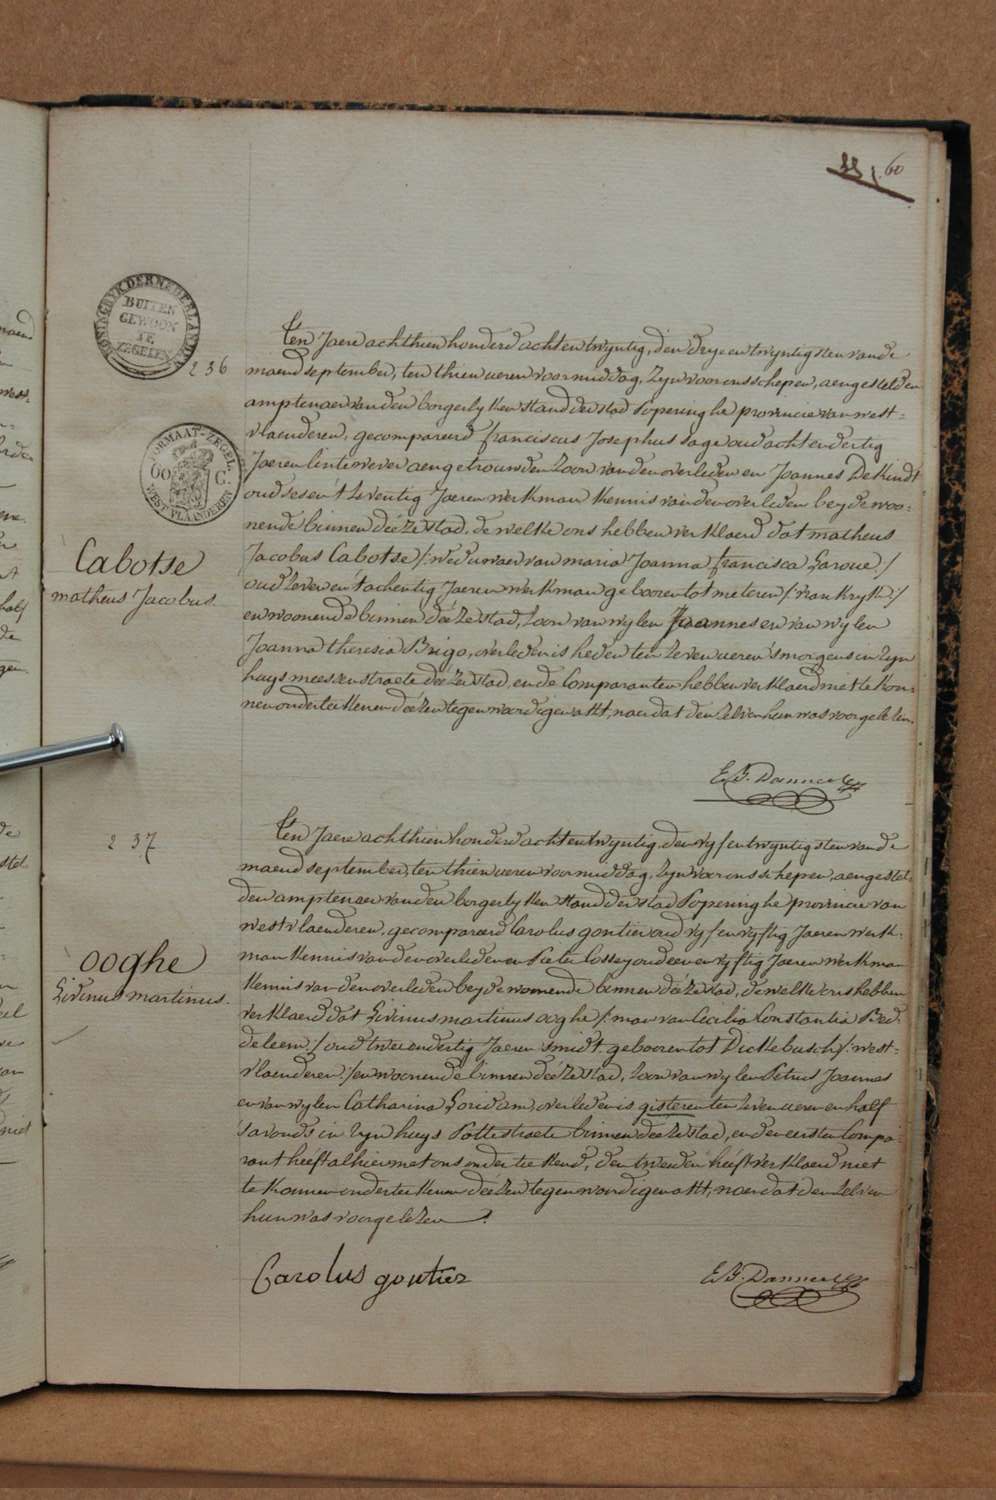 60
KONINGRYK DER NEDERLANDEN
BUITEN
GEWOON
TE
ZEGELEN
236
FORMAAT-ZEGEL
60 C.
WEST VLAANDEREN
Cabotse
matheus Jacobus
Ten Jaere achthien honderd acht en twyntig, den drye en twyntigsten van de
maend september, ten thien ueren voormiddag, zyn voor ons schepen, aengestelden
amptenaer van den borgerlyken stand der stad Poperinghe provincie van west=
vlaenderen, gecompareerd franciscus Josephus sage oud acht en dertig
Jaeren lintewever aengetrouwden zoon van den overleden en Joannes De Kindt
oud ses en t'zeventig Jaeren werkman kennis van den overleden beyde woo=
nende binnen deéze stad, de welke ons hebben verklaerd dat matheus
Jacobus Cabotse /: weduwaer van maria Joanna francisca Laroue :/
oud zeven en tachentig Jaeren werkman gebooren tot meteren /: vrankryk :/
en woonende binnen deéze stad, zoon van wylen Joannes en van wylen
Joanna theresia Brigo, overleden is heden ten zeven ueren 'smorgens in zyn
huys meessenstraete deéze stad, en de Comparanten hebben verklaerd niet te kon=
nen onderteekenen deézen tegenwoordigen akt, naer dat den zelven hun was voorgelezen.
E. B. Danneel
237
ooghe
Livinus martinus.
Ten Jaere achthien honderd acht en twyntig, den vyf en twyntigsten van de
maend september, ten thien ueren voormiddag, zyn voor ons schepen, aengestel=
den amptenaer van den borgerlyken stand der stad Poperinghe provincie van
westvlaenderen, gecompareerd Carolus gontier oud vyf en vyftig Jaeren werk=
man kennis van den overleden en Pieter Cossey oud een en vyftig Jaeren werkman
kennis van den overleden beyde woonende binnen deéze stad, de welke ons hebben
verklaerd dat Livinus martinus ooghe /: man van Cecilia Constantia Bed=
deleem :/ oud twee en dertig Jaeren smidt gebooren tot Dickebusch /: west=
vlaenderen :/ en woonende binnen deéze stad, zoon van wylen Petrus Joannes
en van wylen Catharina Loridam, overleden is gisteren ten zeven ueren en half
s'avonds in zyn huys Pottestraete binnen deéze stad, en den eersten Compa=
rant heeft alhier met ons onderteekend, den tweeden heéft verklaerd niet
te konnen onderteekenen deézen tegenwoordigen akt, naer dat den zelven
hun was voorgelezen.
Carolus gontier
E. B. Danneel